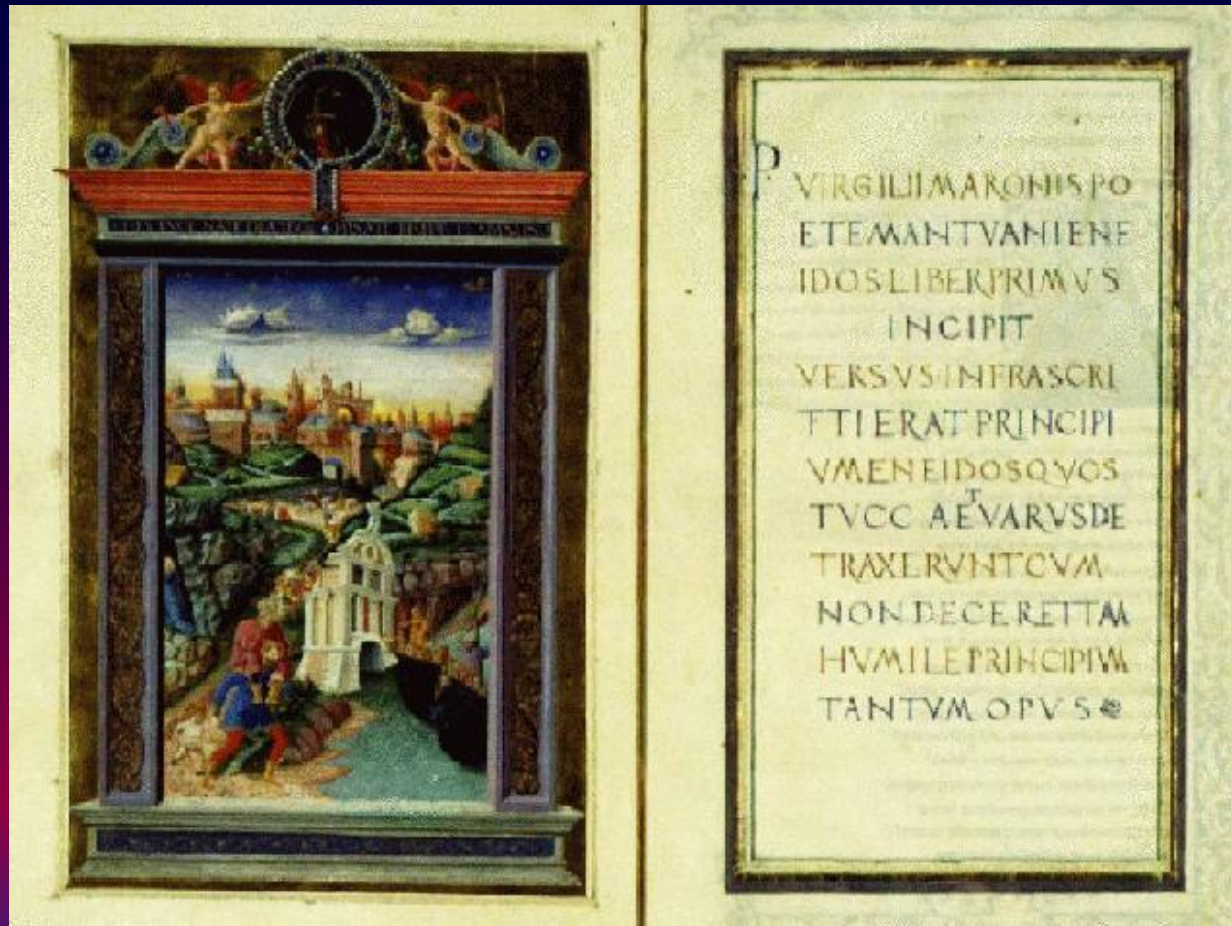 P
VIRGILII MARONIS PO
ETE MANTVANI ENE
IDOS LIBER PRIMVS
INCIPIT
VERSVS INFRASCRI
TTI ERAT PRINCIPI
VM ENEIDOS QVOS
TVCC A ET VARUS DE
TRAXERVNT CVM
NON DECERET TAM
HVMILE PRINCIPIVM
TANTVM OPVS